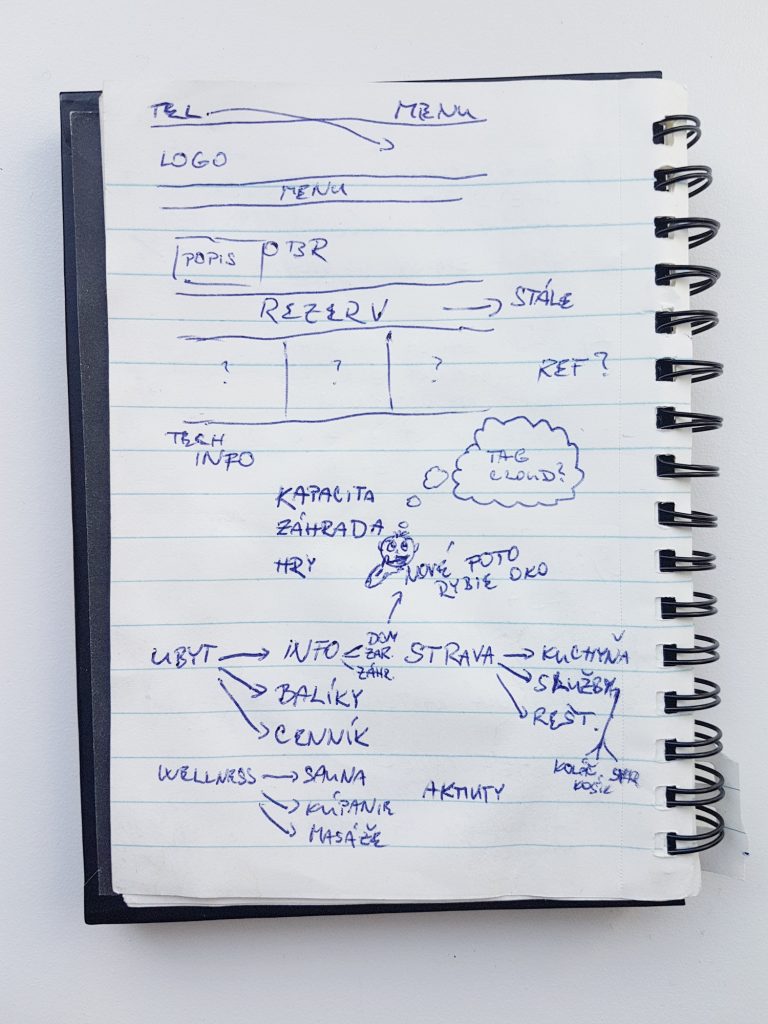 TEL. MENU
LOGO
MENU
POPIS OBR
REZERV STÁLE
? ? ? REF?
TECH
INFO
TAG
CLOUD?
KAPACITA
ZÁHRADA
HRY
NOVÉ FOTO
RYBIE OKO
UBYT INFO DOM
ZAR.
ZÁHR.
BALÍKY
CENNÍK
STRAVA KUCHYŇA
SLUŽBY
REŠT.
KOLÁČ.
KOŠÍK
WELLNESS SAUNA
KÚPANIE
MASÁŽE
AKTIVITY